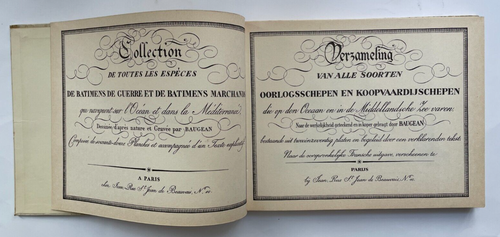 Collection
DE TOUTES LES ESPÈCES
DE BATIMENS DE GUERRE ET DE BATIMENS MARCHANDS
qui naviguent sur l'Océan et dans la Méditerranée
Dessinée d'après nature et Gravée par BAUGEAN
Composée de soixante-douze Planches et accompagnée d'un Texte explicatif
A PARIS
chez Jean, Rue St. Jean de Beauvais, No. 10.
Verzameling
VAN ALLE SOORTEN
OORLOGSSCHEPEN EN KOOPVAARDIJSCHEPEN
die op den Oceaan en in de Middellandsche Zee varen:
Naar de werkelijkheid getekend en in koper gebragt door BAUGEAN
bestaande uit tweeënzeventig platen en begeleid door een verklarenden tekst
Naar de oorspronkelijke Fransche uitgave, verschenen te
PARIJS
by Jean, Rue St. Jean de Beauvais, No. 10.